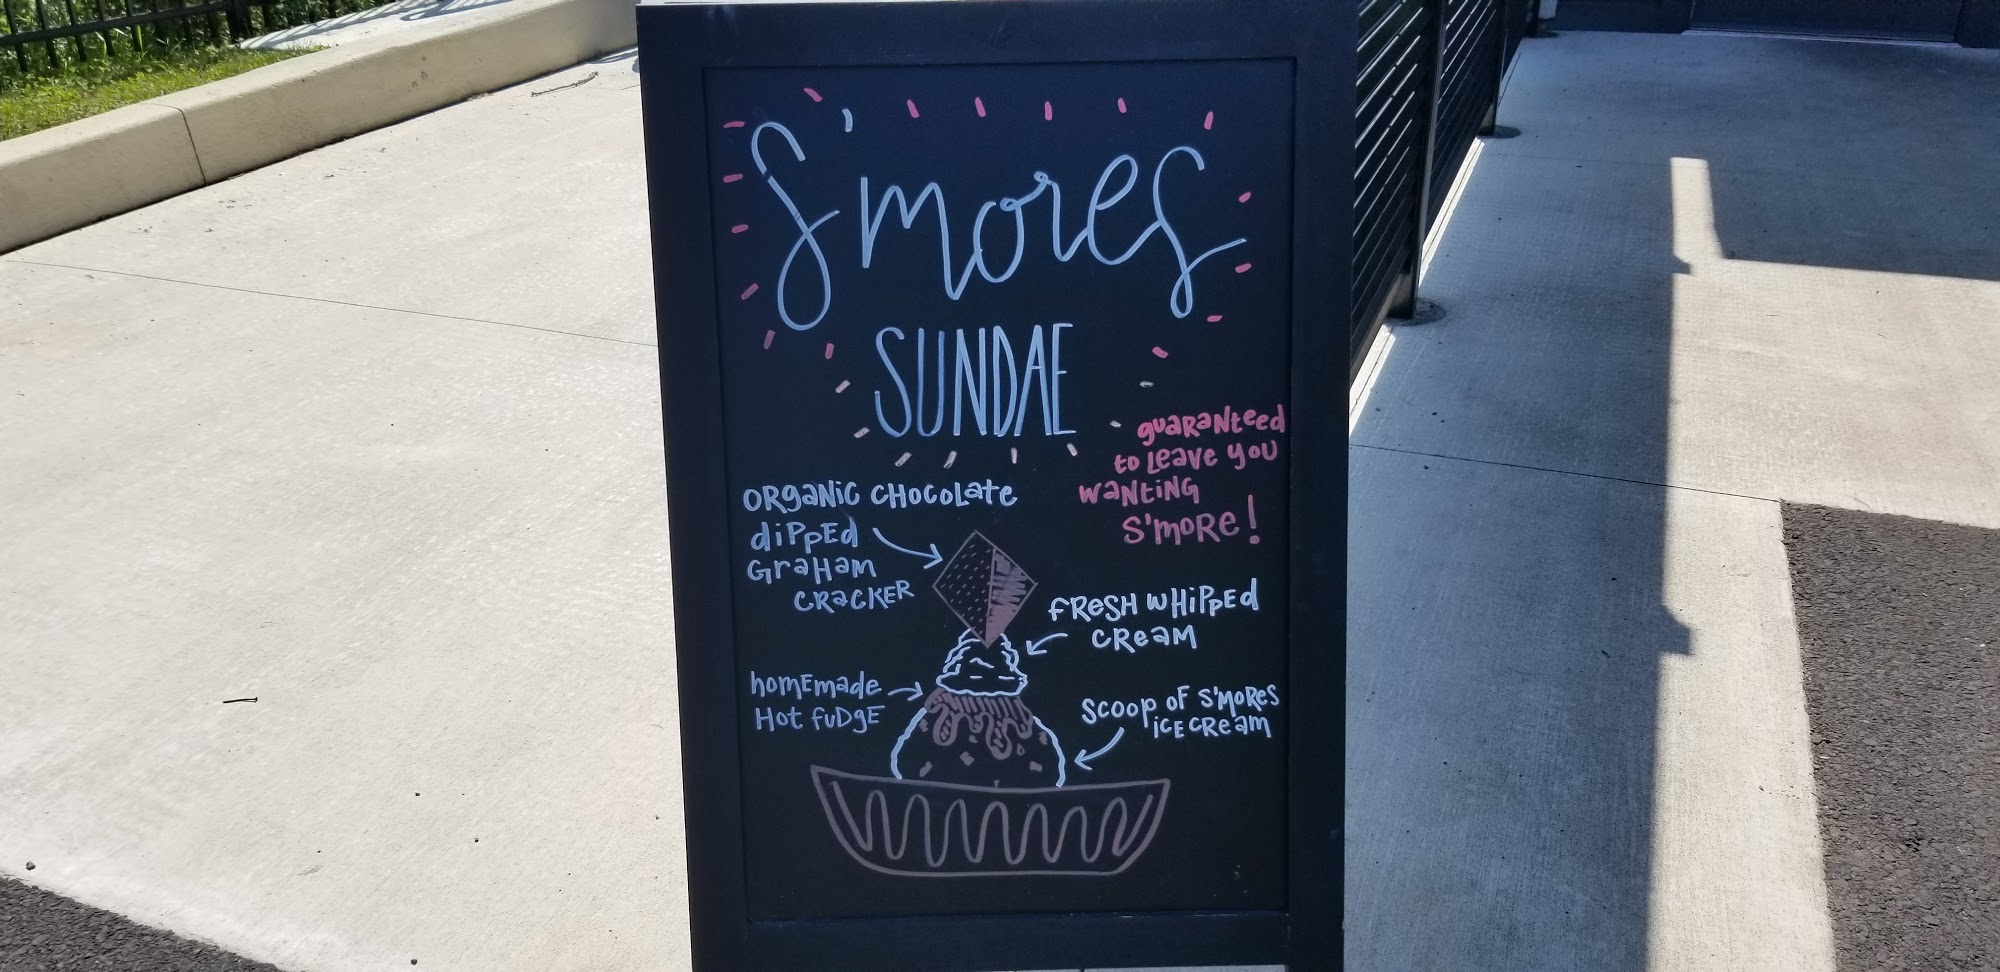 S'mores
SUNDAE
guaranteed
to leave you
wanting
S'more!
organic chocolate
dipped
graham
cracker
fresh whipped
cream
homemade
hot fudge
scoop of s'mores
ice cream